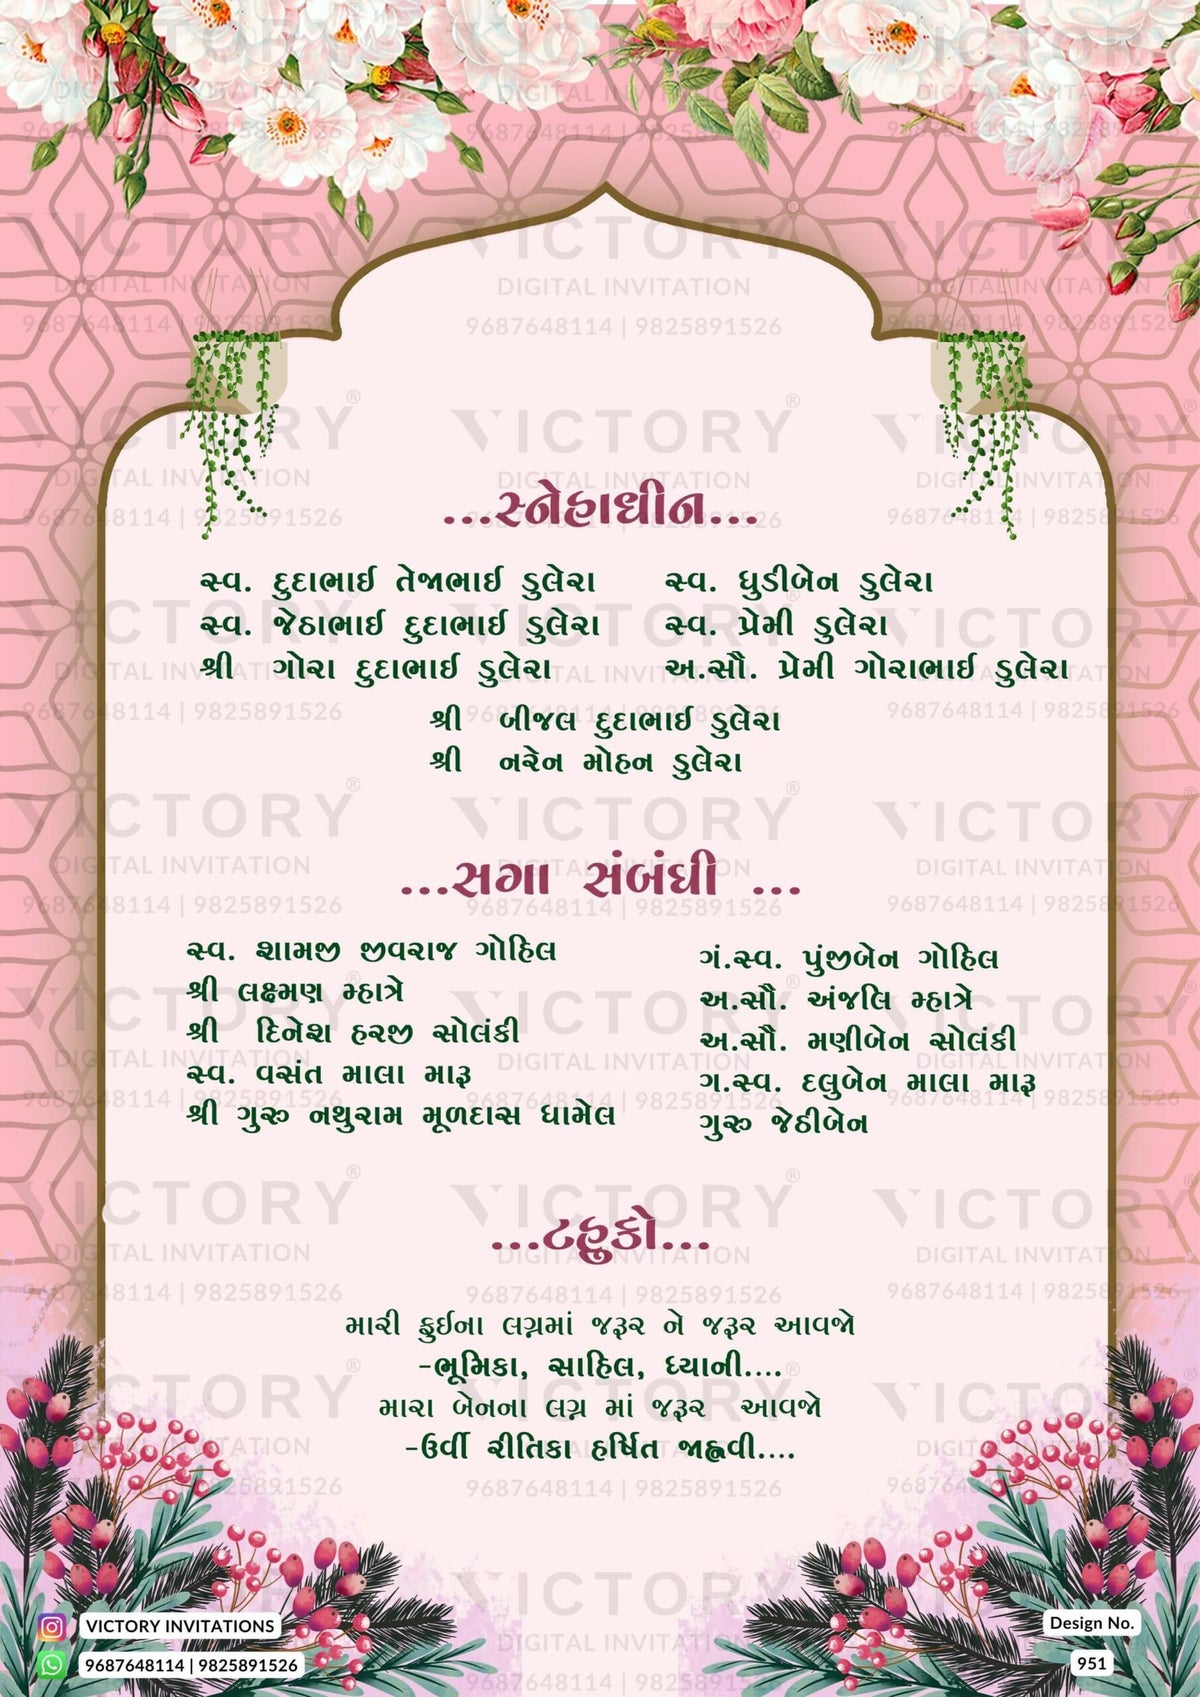 ...સ્નેહાધીન...
સ્વ. દુદાભાઈ તેજાભાઈ ડુલેરા સ્વ. ધુડીબેન ડુલેરા
સ્વ. જેઠાભાઈ દુદાભાઈ ડુલેરા સ્વ. પ્રેમી ડુલેરા
શ્રી ગોરા દુદાભાઈ ડુલેરા અ.સૌ. પ્રેમી ગોરાભાઈ ડુલેરા
શ્રી બીજલ દુદાભાઈ ડુલેરા
શ્રી નરેન મોહન ડુલેરા
...સગા સંબંધી ...
સ્વ. શામજી જીવરાજ ગોહિલ ગં.સ્વ. પુંજીબેન ગોહિલ
શ્રી લક્ષ્મણ મ્હાત્રે અ.સૌ. અંજલિ મ્હાત્રે
શ્રી દિનેશ હરજી સોલંકી અ.સૌ. મણીબેન સોલંકી
સ્વ. વસંત માલા મારૂ ગ.સ્વ. દલુબેન માલા મારૂ
શ્રી ગુરુ નથુરામ મૂળદાસ ધામેલ ગુરુ જેઠીબેન
...ટહુકો...
મારી ફુઈના લગ્નમાં જરૂર ને જરૂર આવજો
-ભૂમિકા, સાહિલ, ધ્યાની....
મારા બેનના લગ્ન માં જરૂર આવજો
-ઉર્વી રીતિકા હર્ષિત જાહ્નવી....
VICTORY INVITATIONS
9687648114 | 9825891526
Design No.
951
VICTORY®
DIGITAL INVITATION
9687648114 | 9825891526